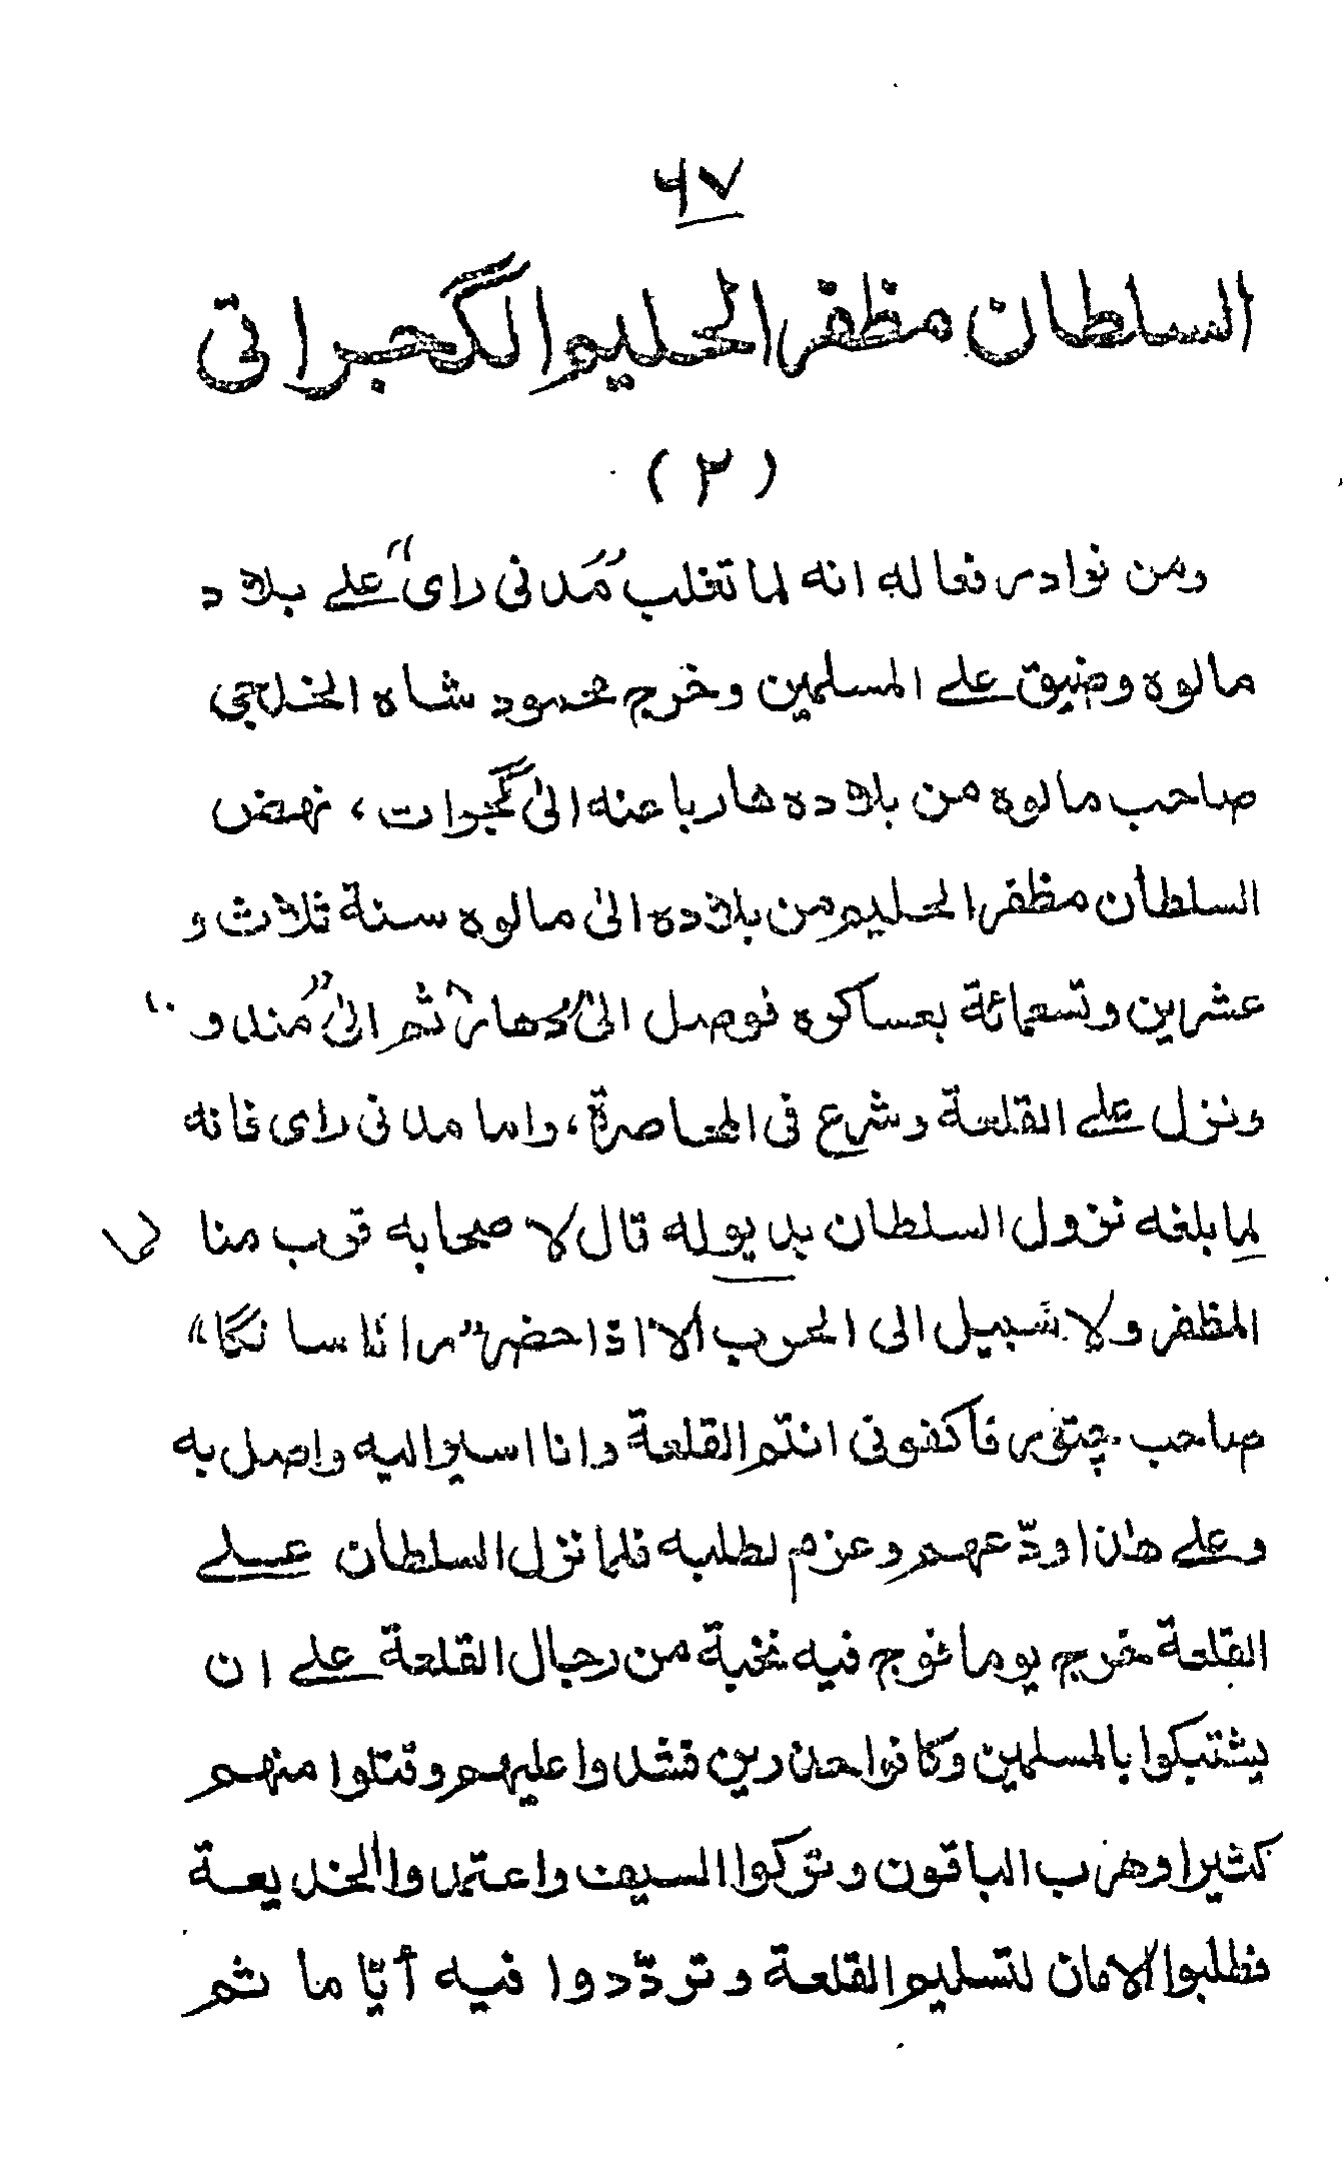 ۶۷
السلطان مظفر الحليم الگجراتی
(۲)
ومن نوادر فعاله انه لما تغلب "مَدنی رای" علی بلاد
مالوه وضيق علی المسلمين وخرج محمود شاه الخلجی
صاحب مالوه من بلاده هاربا عنه الیٰ گجرات، نهض
السلطان مظفر الحليم من بلاده الیٰ مالوه سنة ثلاث و
عشرين وتسعمائة بعساكره فوصل الیٰ "دهار" ثم الیٰ "مَندو"
ونزل علی القلعة وشرع فی المحاصرة، واما مدنی رای فانه
لما بلغه نزول السلطان بديوله قال لاصحابه قرب منا
المظفر ولا سبيل الی الحرب الا اذا حضر "رانا سانگا"
صاحب چتور فاكفونی انتم القلعة وانا اسير اليه واصل به
وعلی هٰذا ودّعهم وعزم لطلبه فلما نزل السلطان علی
القلعة خرج يوما فوج فيه نخبة من رجال القلعة علی ان
يشتبكوا بالمسلمين وكانوا حذرين فشدوا عليهم وقتلوا منهم
كثيرا وهرب الباقون وتركوا السيف واعتمدوا الخديعة
فطلبوا الامان لتسليم القلعة وتردّدوا فيه أيّاما ثم